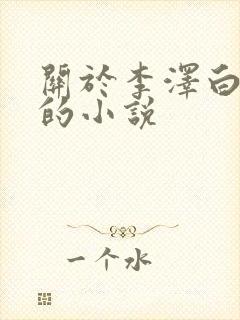 關於李澤白
的小說
一个水